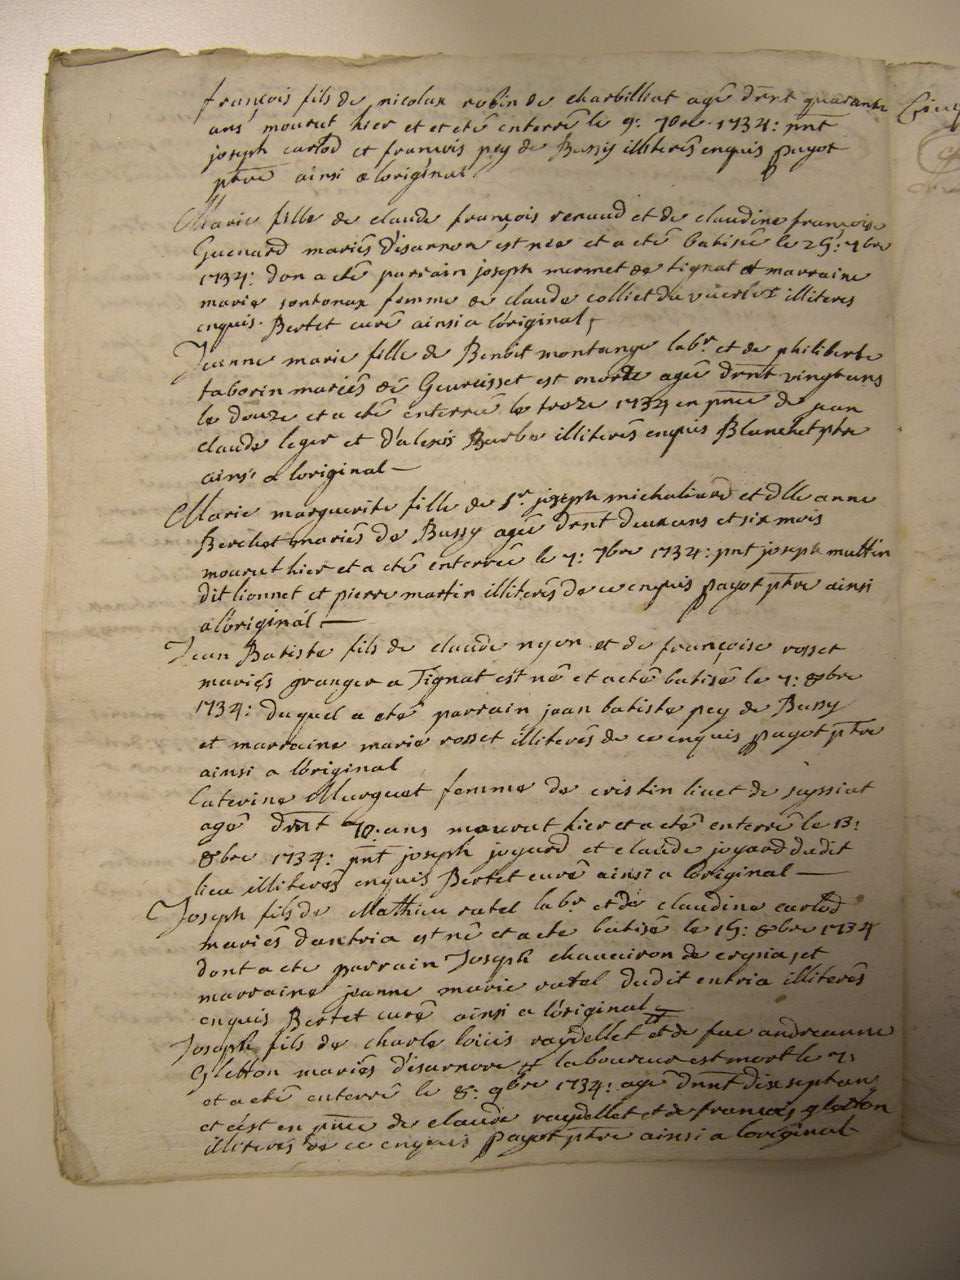 françois fils de nicolax robin de charbilliat agé dnnt quarante
ans mourut hier et et eté enterré le 9: 7bre 1734: pnt
joseph carlod et francois pey de Bussy illiterés enquis payot
ptre ainsi a loriginal
Marie fille de claude françois renaud et de claudine françoise
Guenard mariés d'isarnon est née et a eté batisée le 25: 7bre
1734: don a eté parrain joseph mermet de tignat et marraine
marie sontonax femme de claude colliet du illiteres
enquis. Bertet curé ainsi a loriginal
Jeanne marie fille de Benoit montange labr et de philiberte
taborin mariés de Gevrisset est morte agée dnnt vingt ans
le douze et a eté enterrée le treze 1734 en pnce de jean
claude leger et d'alexis Barbe illiterés enquis Blanchet ptre
ainsi a loriginal
Marie marguerite fille de Sr joseph michaliard et dlle anne
Berchet mariés de Bussy agée dnnt deux ans et six mois
mourut hier et a eté enterrée le 7: 7bre 1734: pnt joseph multin
dit lionnet et pierre martin illiterés de ce enquis payot ptre ainsi
a loriginal
Jean Batiste fils de claude nyon et de françoise rosset
mariés granger a Tignat est né et a eté batisé le 7: 8bre
1734: duquel a eté parrain jean batiste pey de Bussy
et marraine marie rosset illiterés de ce enquis payot ptre
ainsi a loriginal
Caterine Murguet femme de cristin livet de sayssiat
agé dnnt 70. ans mourut hier et a eté enterré le 13:
8bre 1734: pnt joseph joyard et claude joyard dudit
lieu illiterés enquis Bertet curé ainsi a loriginal
Joseph fils de Mathieu ratel labr et de claudine carlod
mariés dantria est né et a eté batisé le 15: 8bre 1734
dont a eté parrain Joseph chaveiron de crysia et
marraine jeanne marie ratel dudit entria illiterés
enquis Bertet curé ainsi a loriginal
Joseph fils de charle louis raydellet et de fue andreanne
Gletton mariés d'isarnore laboureur est mort le 7:
et a eté enterré le 8: 9bre 1734: agé dnnt dix sept ans
et c'ést en pnce de claude raydellet et de francois gletton
illiteres de ce enquis payot ptre ainsi a loriginal